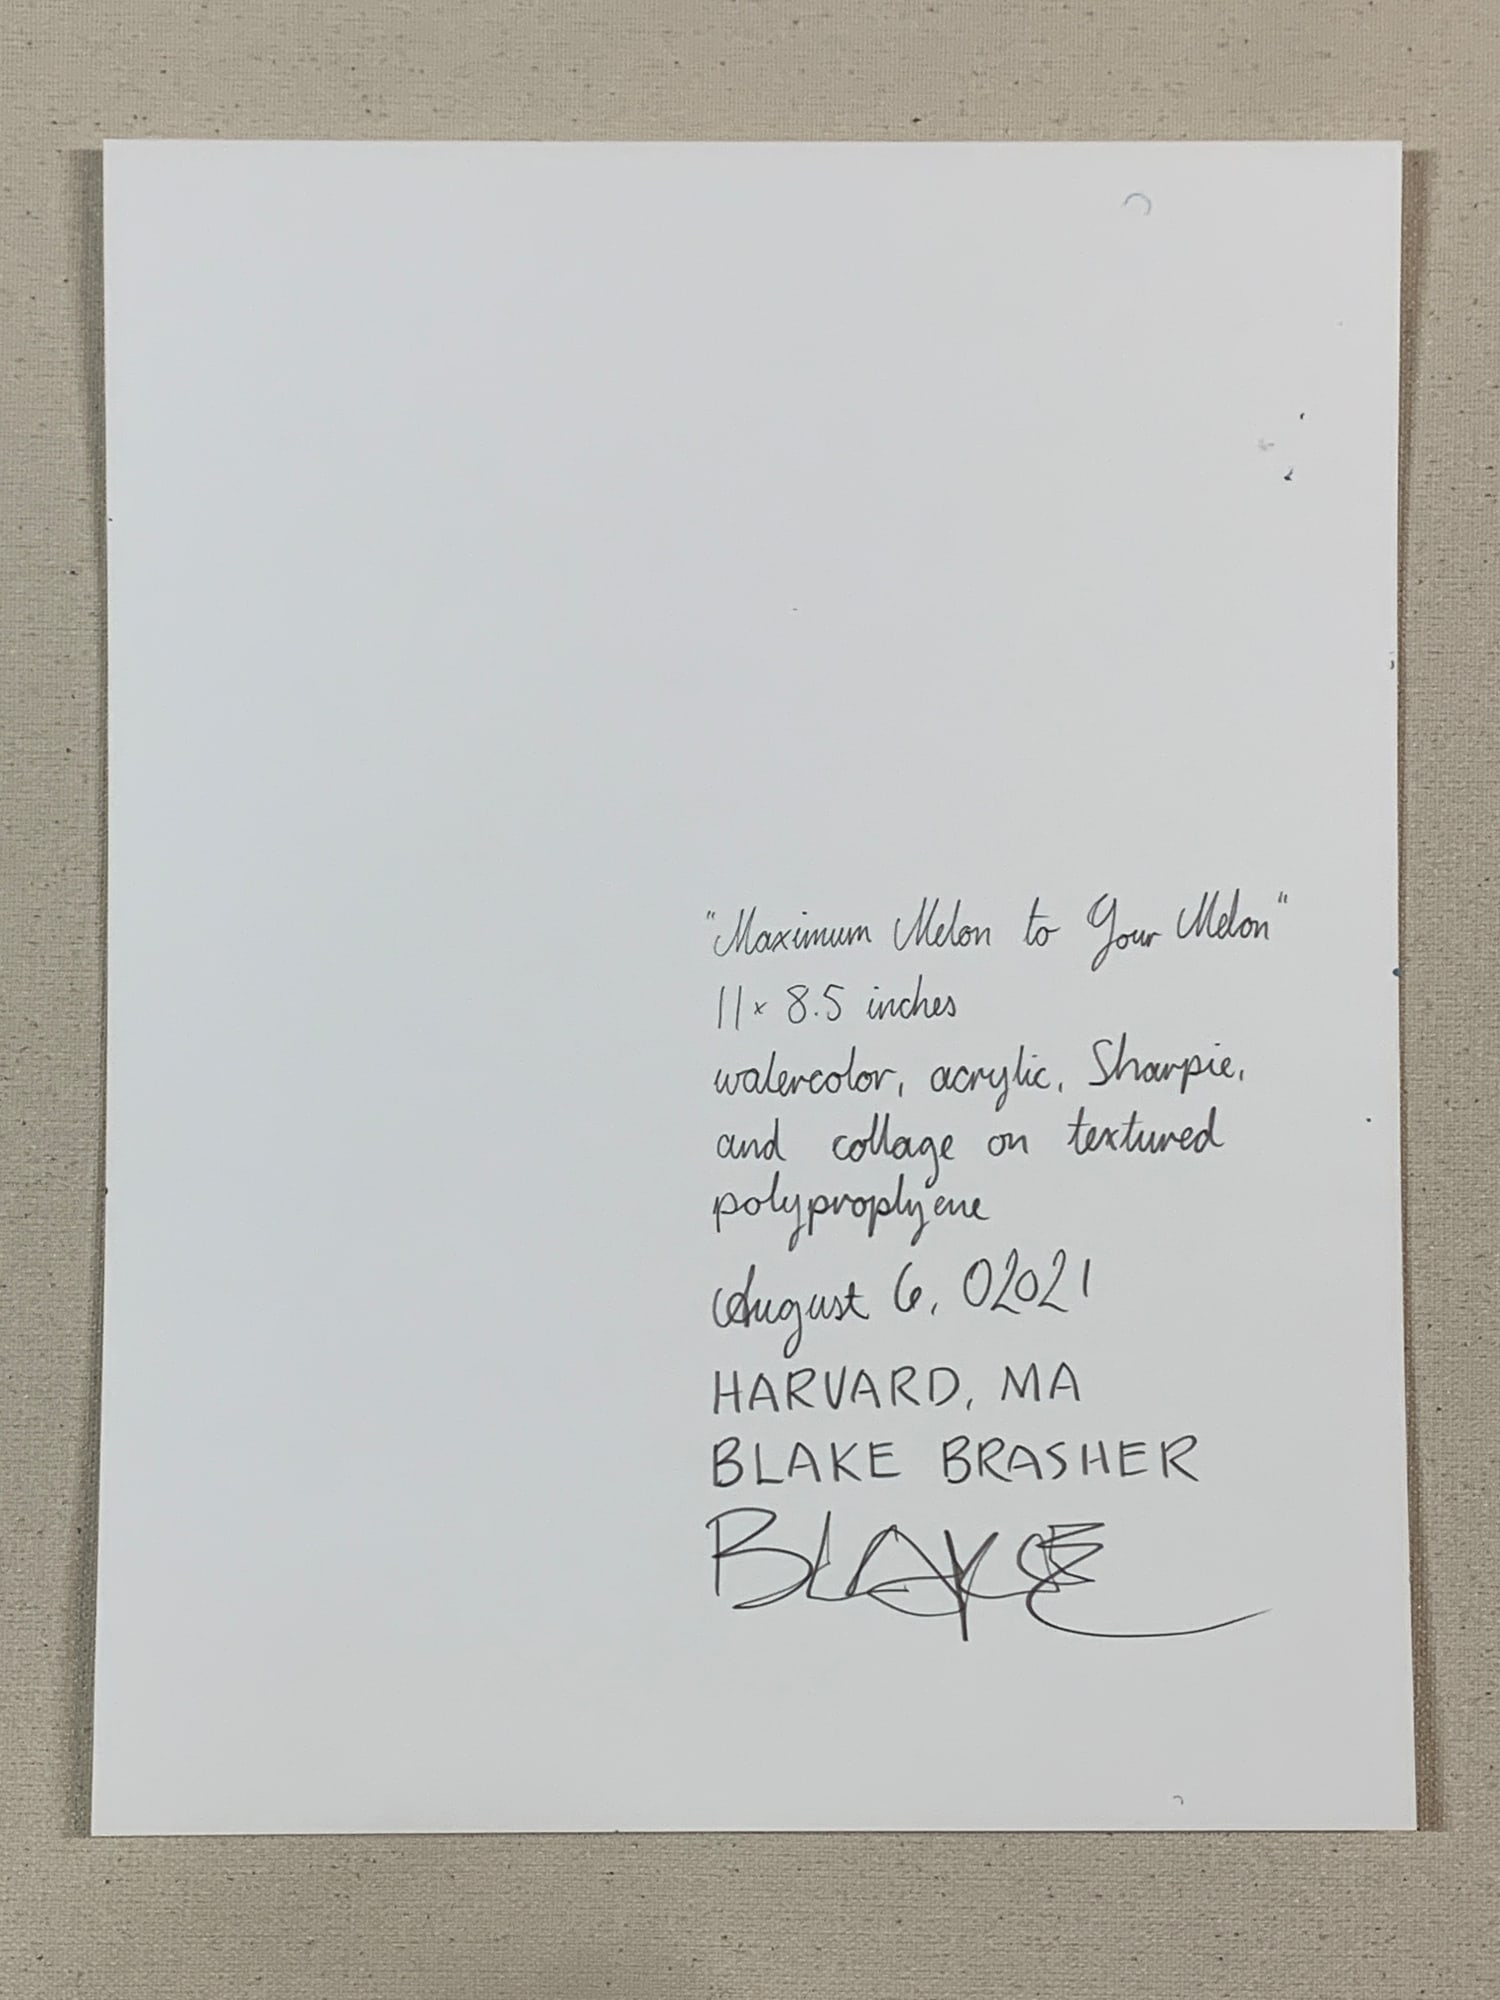 "Maximum Melon to Your Melon"
11 x 8.5 inches
watercolor, acrylic, Sharpie,
and collage on textured
polyproplyene
August 6, 02021
HARVARD, MA
BLAKE BRASHER
BLAKE